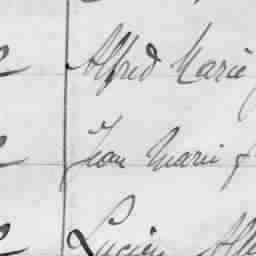 Alfred Marie
Jean Marie
Lucien